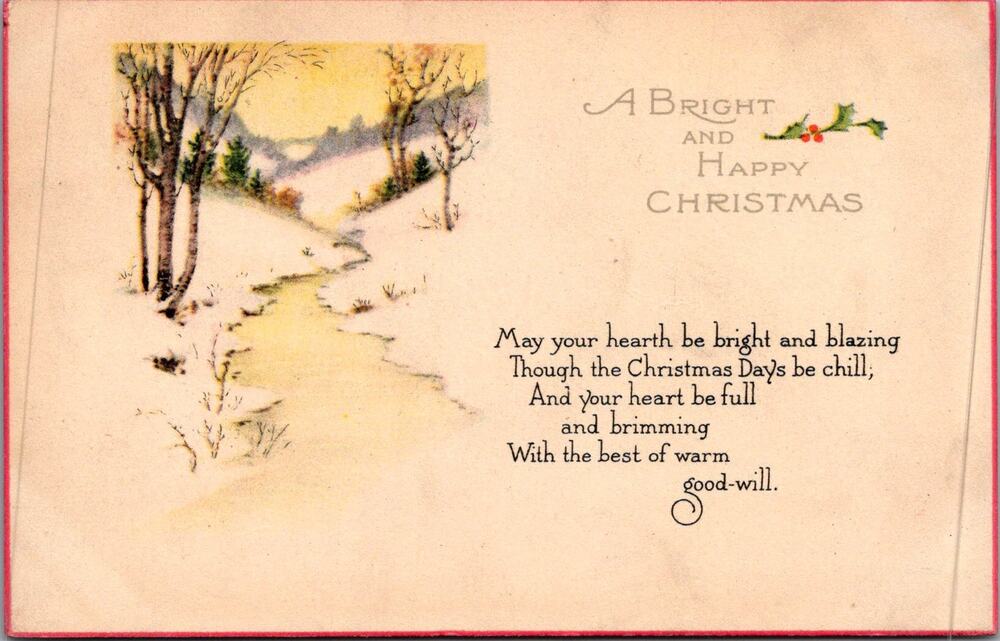 A Bright
and
Happy
Christmas
May your hearth be bright and blazing
Though the Christmas Days be chill;
And your heart be full
and brimming
With the best of warm
good-will.